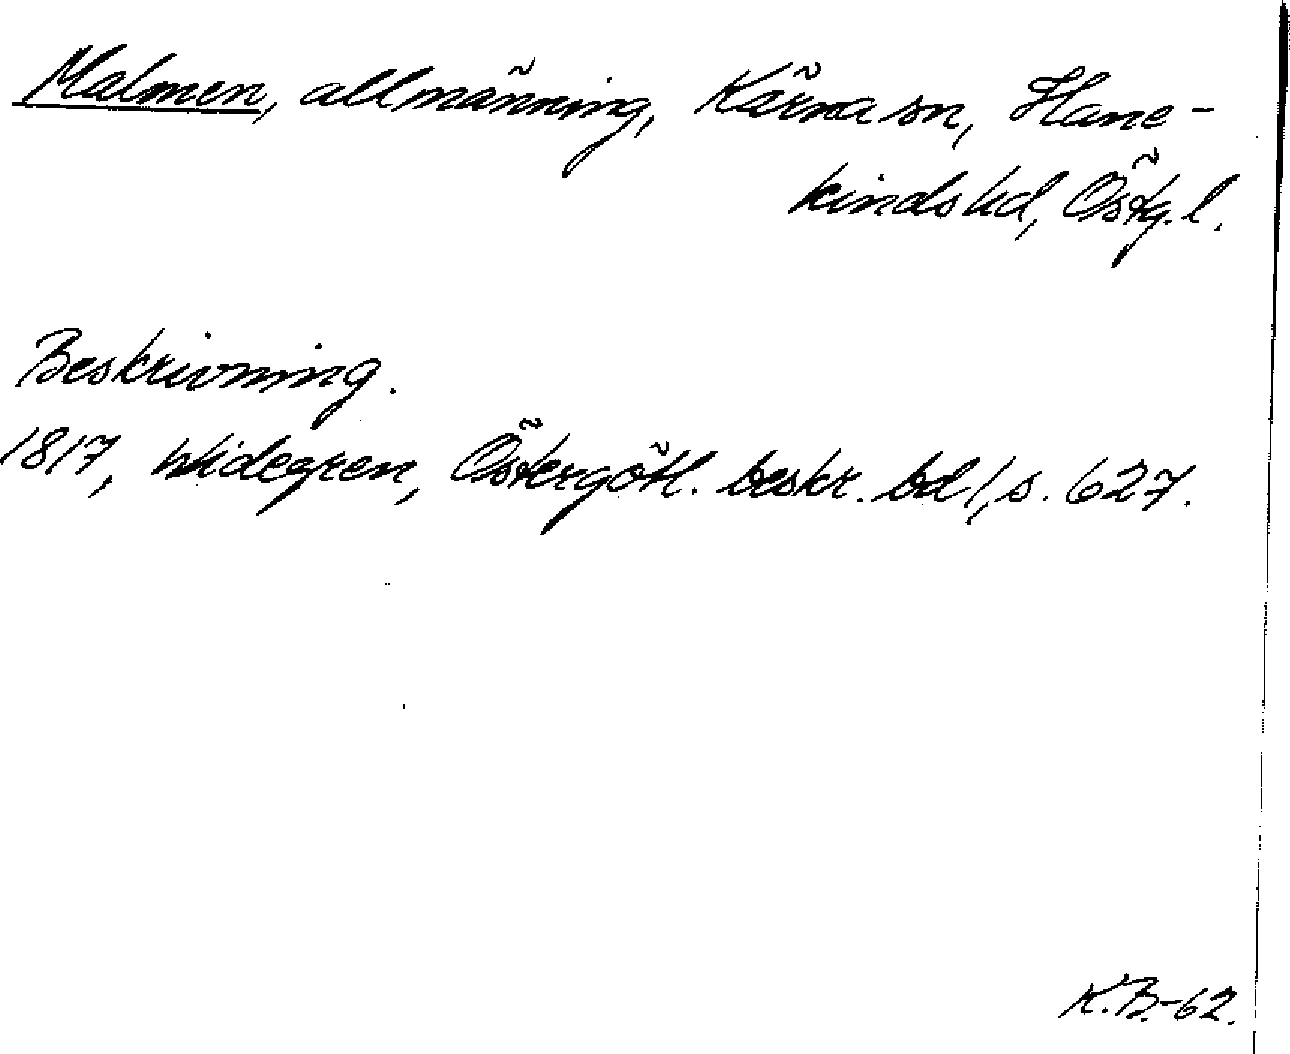 Malmen, allmänning, Kärna sn, Hane-
kinds hd, Östg.l.
Beskrivning.
1817, Widegren, Östergötl. beskr. bd 1, s. 627.
K.B.-62.